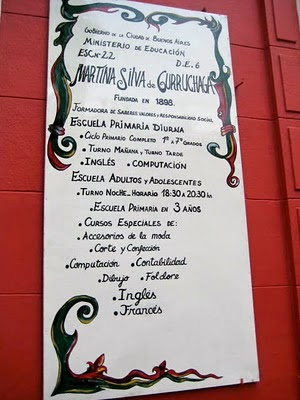 Gobierno de la Ciudad de Buenos Aires
Ministerio de Educación
Esc Nº 22 D.E. 6
Martina Silva de Gurruchaga
Fundada en 1898.
Formadora de Saberes Valores y Responsabilidad Social
Escuela Primaria Diurna
• Ciclo Primario Completo 1º a 7º grados
• Turno Mañana y Turno Tarde
• Inglés • Computación
Escuela Adultos y Adolescentes
• Turno Noche - Horario 18:30 a 20:30 hs
• Escuela Primaria en 3 años
• Cursos Especiales de:
• Accesorios de la moda
• Corte y Confección
• Computación • Contabilidad
• Dibujo • Folclore
• Inglés
• Francés